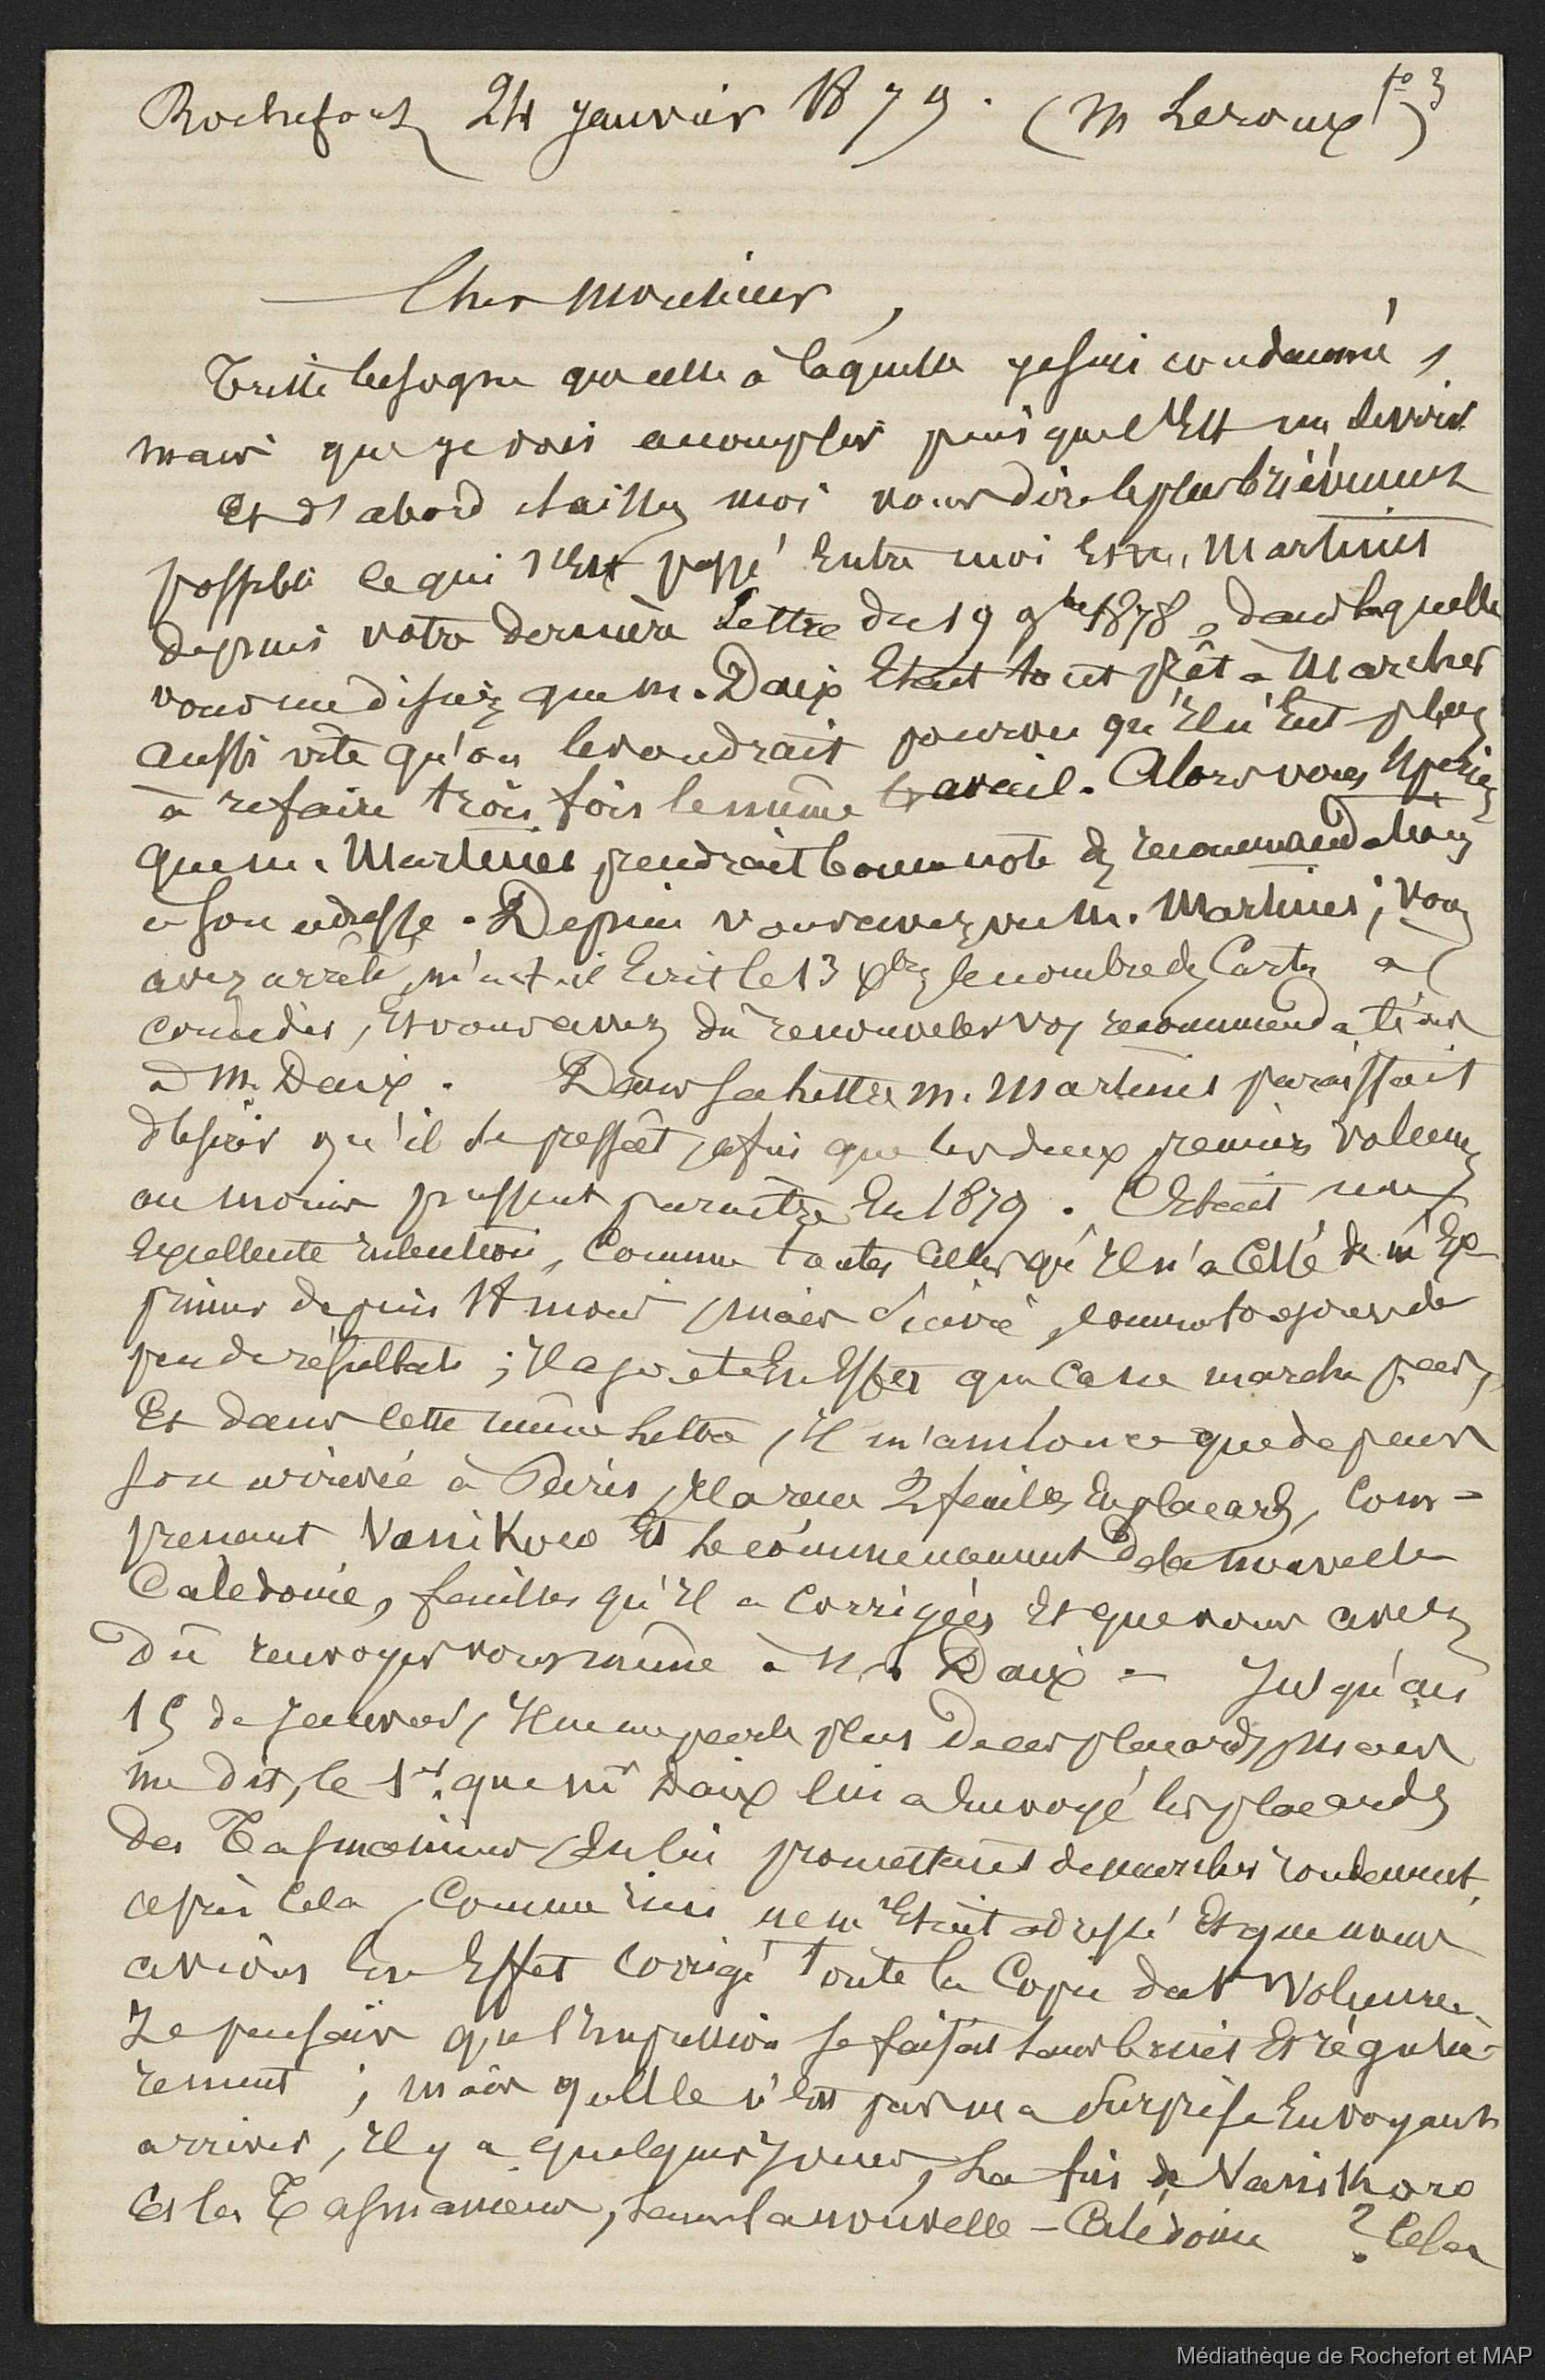 Rochefort 24 janvier 1879. (M Leroux) fo 3
Cher Monsieur,
Triste besogne que celle à laquelle je suis condamné,
mais que je vais accomplir puisque c'Est un devoir.
Et d'abord laissez moi vous dire le plus brièvement
possible ce qui s'Est passé Entre moi Et M. Martinet
depuis votre dernière Lettre du 19 9bre 1878, dans laquelle
vous me disiez que M. Daix Etait tout prêt à Marcher
aussi vite qu'on le voudrait pourvu qu'Il n'Eut plus
à refaire trois fois le même travail. Alors vous Espériez
que M. Martinet prendrait bonne note des recommandations
à son adresse. Depuis vous avez vu M. Martinet, vous
avez arrêté, m'a-t-il Ecrit le 13 Xbre, le nombre des Cartes à
, Et vous avez dû renouveler vos recommendations
à M. Daix. Dans sa Lettre M. Martinet paraissait
désirer qu'il se pressât, afin que les deux premiers volumes
au moins pussent paraître En 1879. C'Etait une
Excellente intention, Comme toutes Celles qu'Il n'a Cessé de m'Ex-
primer depuis 18 mois, mais suivie, comme toujours de
peu de résultats ; Il ajoute En Effet que Ca ne marche pas,
Et dans Cette même Lettre, Il m'annonce que depuis
son arrivée à Paris, Il a reçu 2 feuilles En placards, Com-
prenant Vanikoro Et Le commencement de la nouvelle
Calédonie, feuilles qu'Il a Corrigées Et que vous avez
dû renvoyer vous même à M. Daix – Jusqu'au
15 de Janvier, Il ne me parle plus de ces placards, Mais
me dit, le 1er. que Mr Daix lui a Envoyé les placards
des Tasmaniens, En lui promettant de marcher rondement.
après Cela, Comme rien ne m'Etait adressé Et que nous
avions En Effet Corrigé toute la Copie du 1 Volume,
Je pensais que l'Impression se faisait sans bruit Et réguliè-
rement ; mais quelle n'Est pas ma Surprise En voyant
arriver, Il y a quelques Jours, La fin de Vanikoro
Et les Tasmaniens, sans la nouvelle – Calédonie ? Cela
Médiathèque de Rochefort et MAP